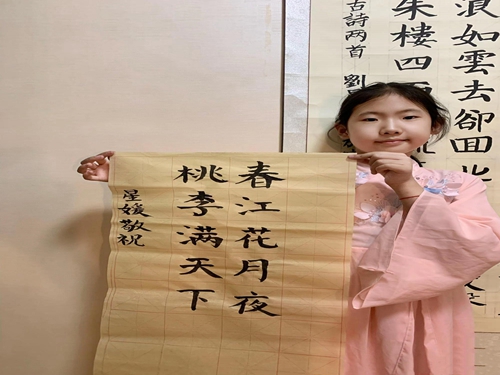 春江花月夜
桃李满天下
星媛敬祝
浪如雲去卻回北
朱樓四面
古詩两首 劉